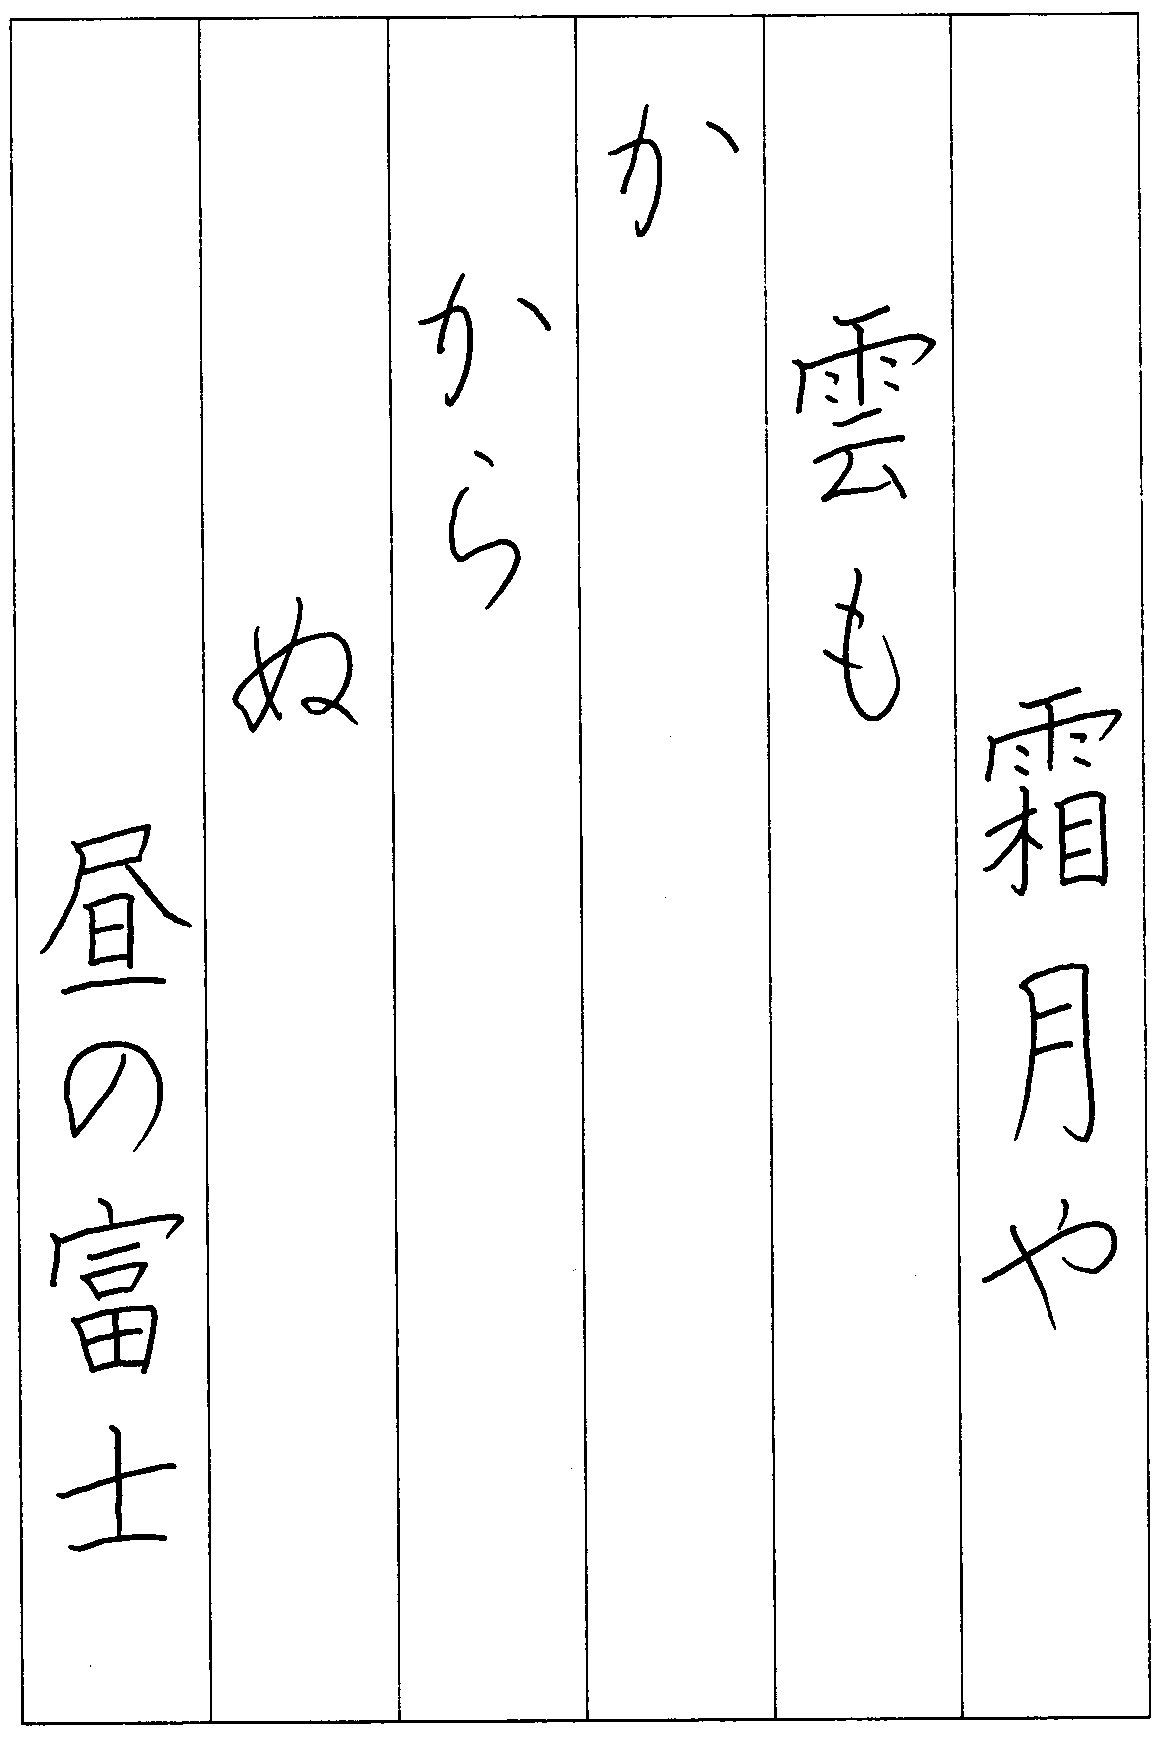 霜月や
雲も
か
から
ぬ
昼の富士